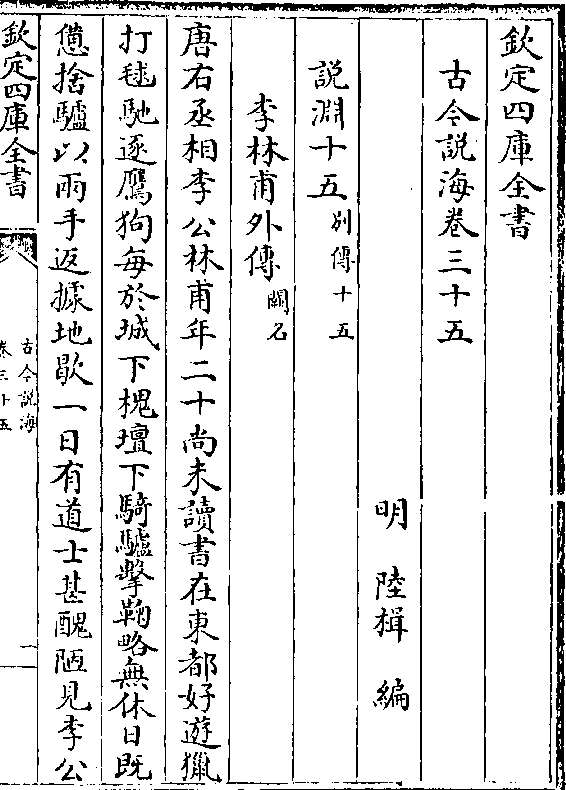 欽定四庫全書
古今説海卷三十五
明　陸楫　編
説淵十五别傳十五
李林甫外傳闕名
唐右丞相李公林甫年二十尚未讀書在東都好遊獵
打毬馳逐鷹狗每於城下槐壇下騎驢擊鞠略無休日既
憊捨驢以兩手返據地歇一日有道士甚醜陋見李公
欽定四庫全書
古今説海
卷三十五
一